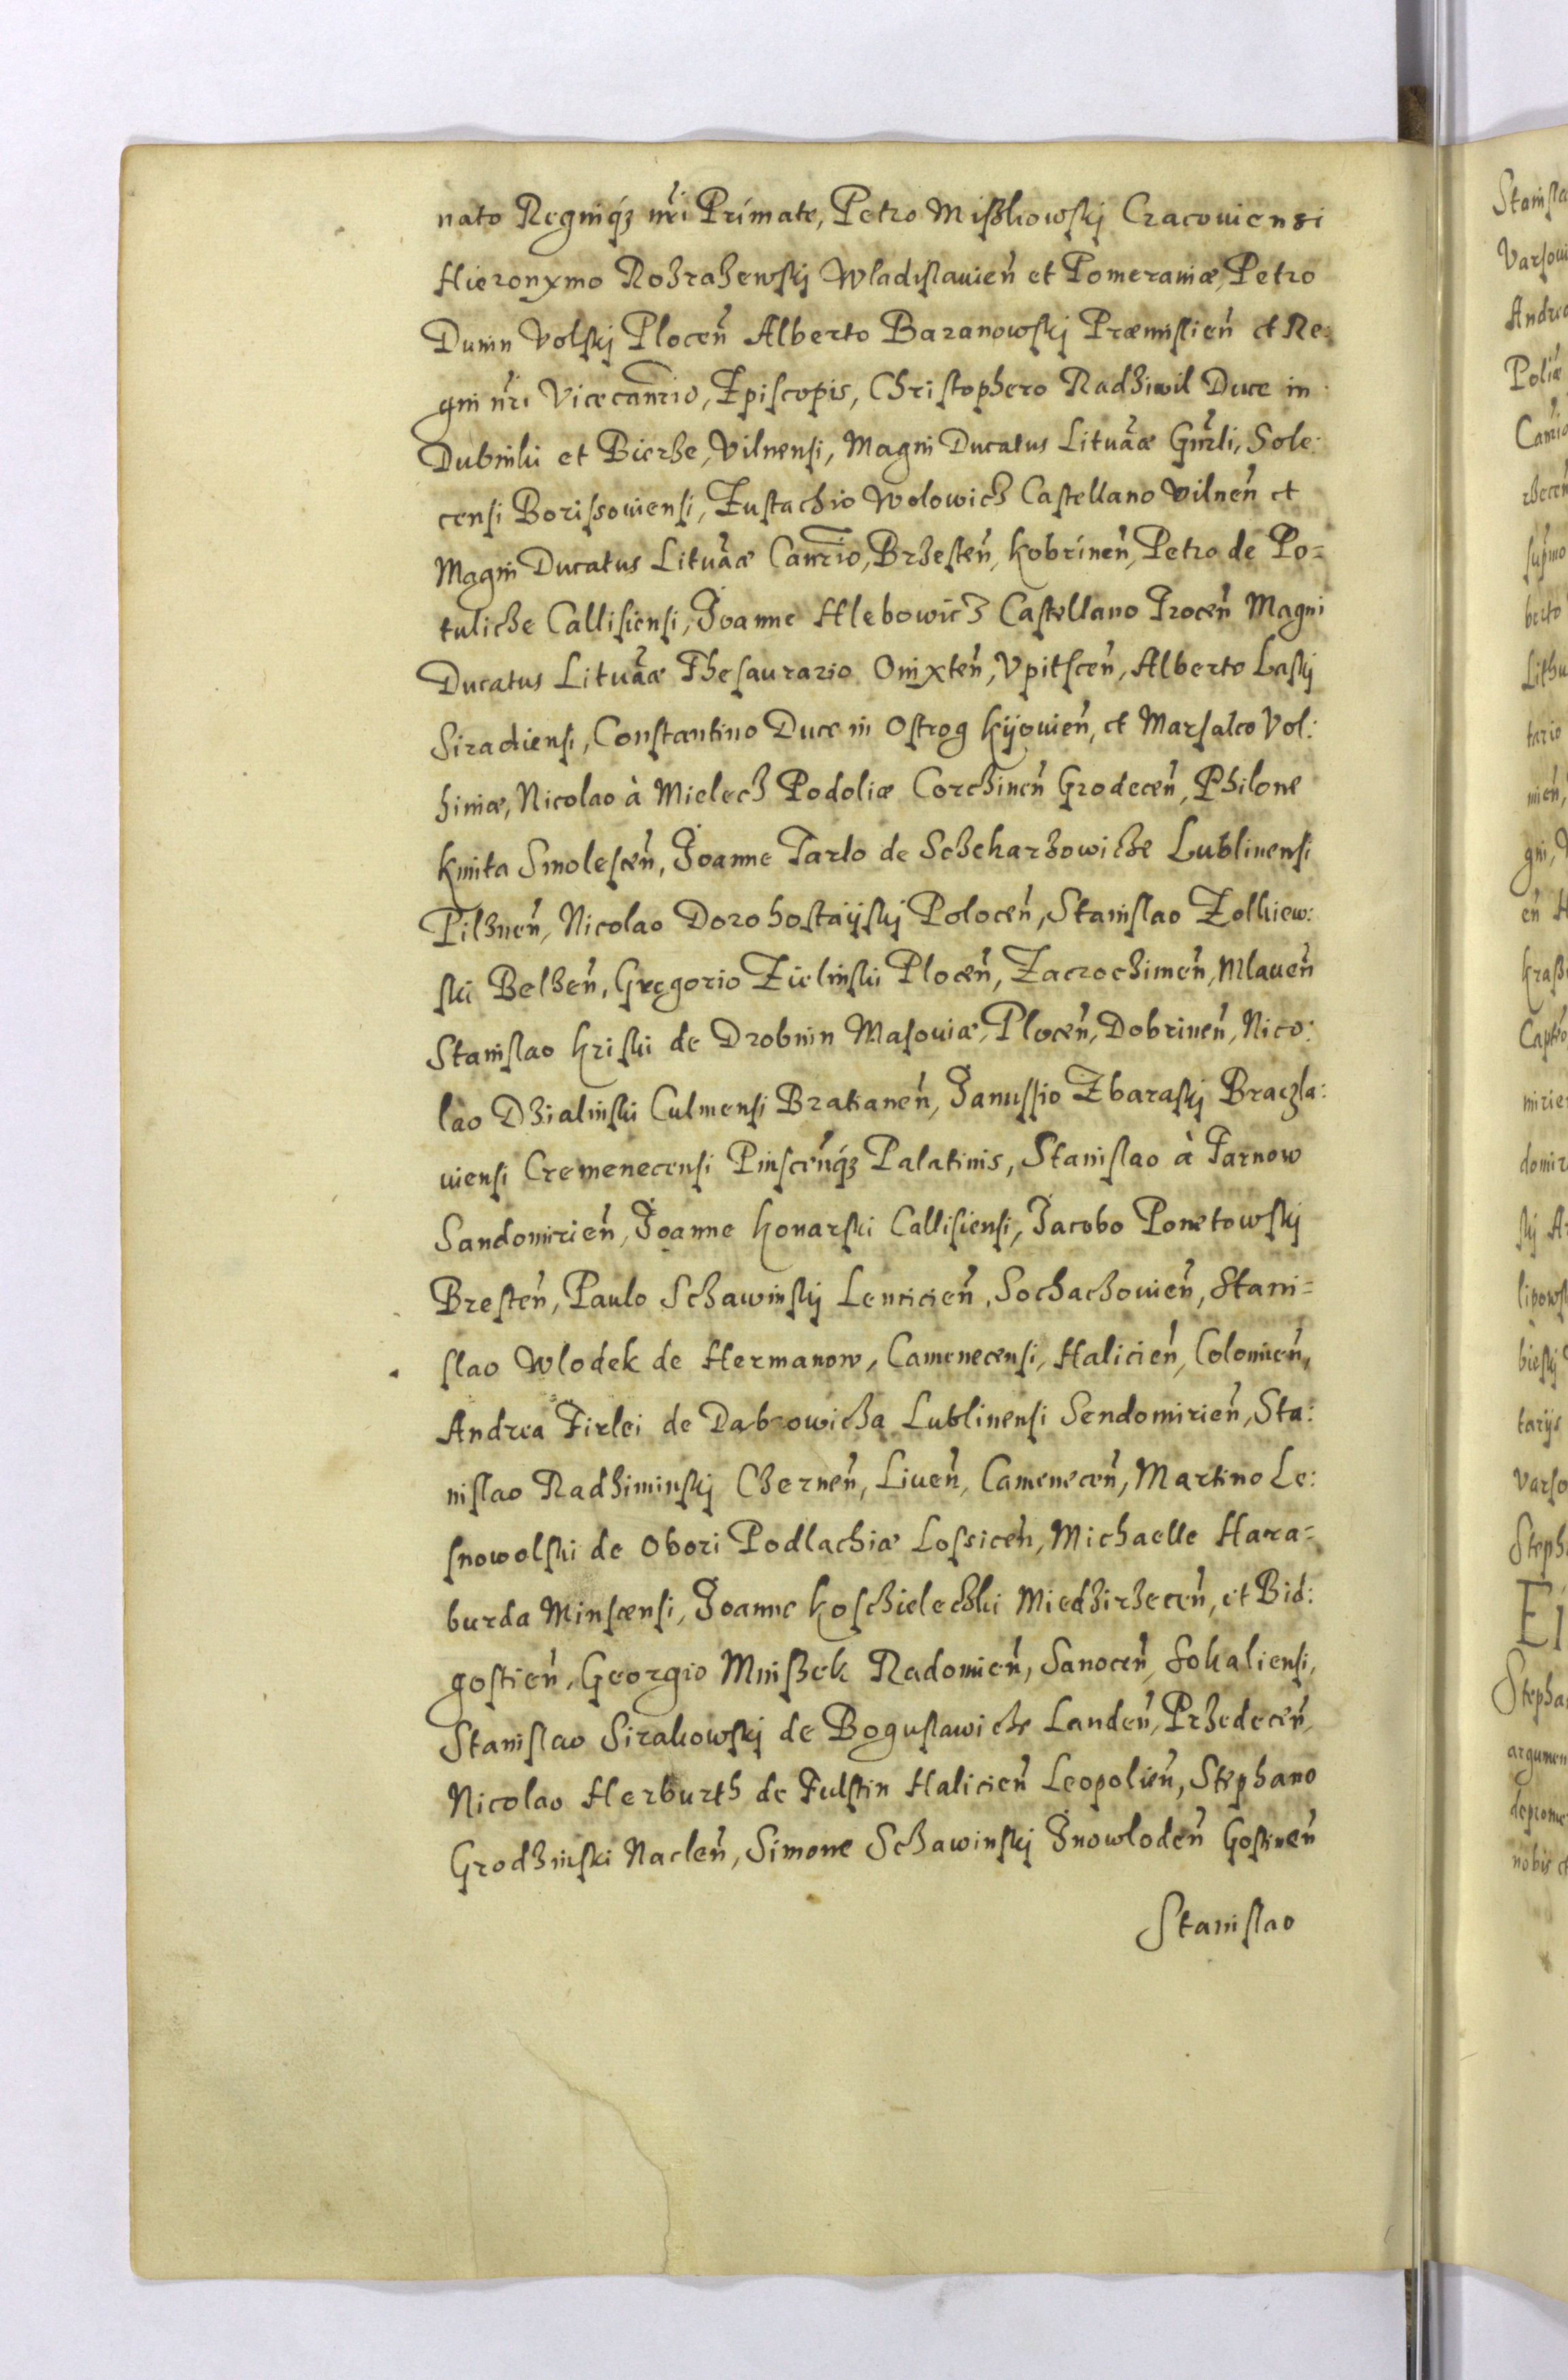 nato Regniq́ꝫ nr̃i Primate, Petro Mißkowskj Cracouiensi
Hieronymo Rozrazewskj Wladislauien̄ et Pomeraniæ, Petro
Dunin Volskj Plocen̄ Alberto Baranowskj Præmislien̄ et Re:
gni nr̃i Vicecanr̃io, Episcopis, Christophero Radziwil Duce in
Dubinki et Bierze, Vilnensi, Magni Ducatus Lituãæ Gnr̃li, Sole:
censi Borissouiensi, Eustachio Wolowicz Castellano Vilnen̄ et
Magni Ducatus Lituãæ Canr̃io, Brzesten̄, Kobrinen̄, Petro de Po=
tulicze Callisiensi, Joanne Hlebowicz Castellano Trocen̄ Magni
Ducatus Lituãæ Thesaurario Onixten̄, Vpitscen̄, Alberto Laskj
Siradiensi, Constantino Duce in Ostrog Kijouien̄, et Marsalco Vol:
hiniæ, Nicolao à Mielecz Podoliæ Corczinen̄ Grodecen̄, Philone
Kmita Smolescen̄, Joanne Tarlo de Sczekarzowicze Lublinensi
Pilznen̄, Nicolao Dorohostaijskj Polocen̄, Stanislao Zolkiew:
ski Belzen̄, Gregorio Zielinski Plocen̄, Zacrochimen̄, Mlauen̄
Stanislao Kriski de Drobnin Masouiæ, Plocen̄, Dobrinen̄, Nico:
lao Dzialinski Culmensi Bratianen̄, Janussio Zbaraskj Braczla:
uiensi Cremenecensi Pinscen̄q́ꝫ Palatinis, Stanislao à Tarnow
Sandomirien̄, Joanne Konarski Callisiensi, Jacobo Ponetowskj
Bresten̄, Paulo Sczawinskj Lencicien̄, Sochaczouien̄, Stani=
slao Wlodek de Hermanow, Camenecensi, Halicien̄, Colomien̄,
Andrea Firlei de Dabrowicza Lublinensi Sendomirien̄, Sta:
nislao Radziminskj Czernen̄, Liuen̄, Camenecen̄, Martino Le:
snowolski de Obori Podlachiæ Lossicen̄, Michaelle Hara=
burda Minscensi, Joanne Kosczieleczki Miedzirzecen̄, et Bid:
gostien̄, Georgio Mnißek Radomien̄, Sanocen̄ Sokaliensi,
Stanislao Sirakowskj de Boguslawicze Landen̄, Przedecen̄,
Nicolao Herburth de Fulstin Halicien̄ Leopolien̄, Stephano
Grodzinski Naclen̄, Simone Sczawinskj Jnowloden̄ Gostinen̄
Stanislao